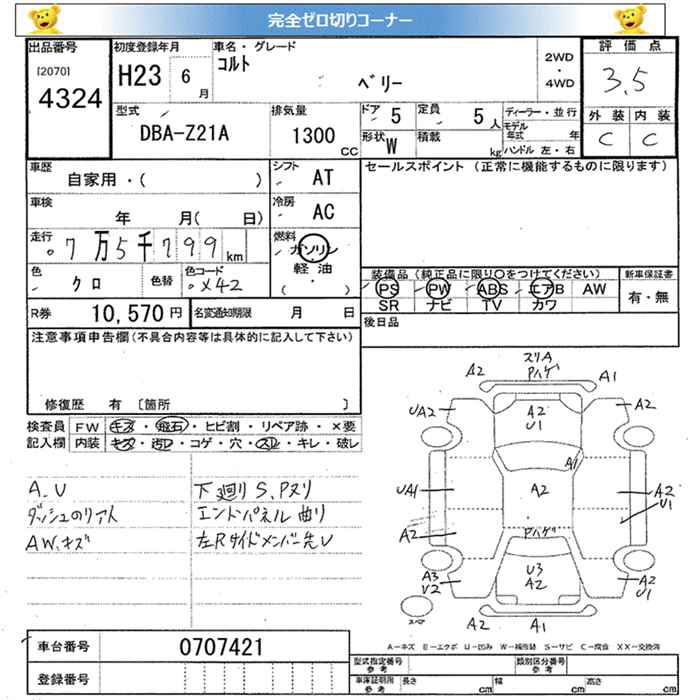 完全ゼロ切りコーナー
出品番号 [2070] 4324
初度登録年月 H23 6月
車名・グレード コルト ベリー
2WD・4WD
評価点 3.5
外装 C 内装 C
型式 DBA-Z21A
排気量 1300 CC
ドア 5 定員 5人
形状 W 積載 kg
ディーラー・並行
モデル年式 年
ハンドル 左・右
車歴 自家用・( )
シフト AT
セールスポイント (正常に機能するものに限ります)
車検 年 月( 日)
冷房 AC
走行 7万5千799km
燃料 ガソリン 軽油 ( ・ )
色 クロ 色替 色コード X42
装備品(純正品に限り○をつけてください)
PS PW ABS エアB AW
SR ナビ TV カワ
新車保証書 有・無
R券 10,570円 名変通知期限 月 日
後日品
注意事項申告欄(不具合内容等は具体的に記入して下さい)
修復歴 有 [箇所 ]
検査員記入欄
FW キズ・飛石・ヒビ割・リペア跡・×要
内装 キズ・汚レ・コゲ・穴・スレ・キレ・破レ
A、U
AW、キズ
下廻りS、Pヌリ
エンドパネル曲り
左Rサイドメンバー先U
スリA
A2 Pハゲ A1
UA2 A2 U1 A2
A1
UA1 A2 A2 U1
A2 Pハゲ
A3 U2 U3 A2 A2 U1
スペア A2 A1
A-キズ E-エクボ U-凹み W-補修跡 S-サビ C-腐食 XX-交換済
車台番号 0707421
登録番号
型式指定番号 参考 類別区分番号 参考
車庫証明用 参考 長さ cm 幅 cm 高さ cm